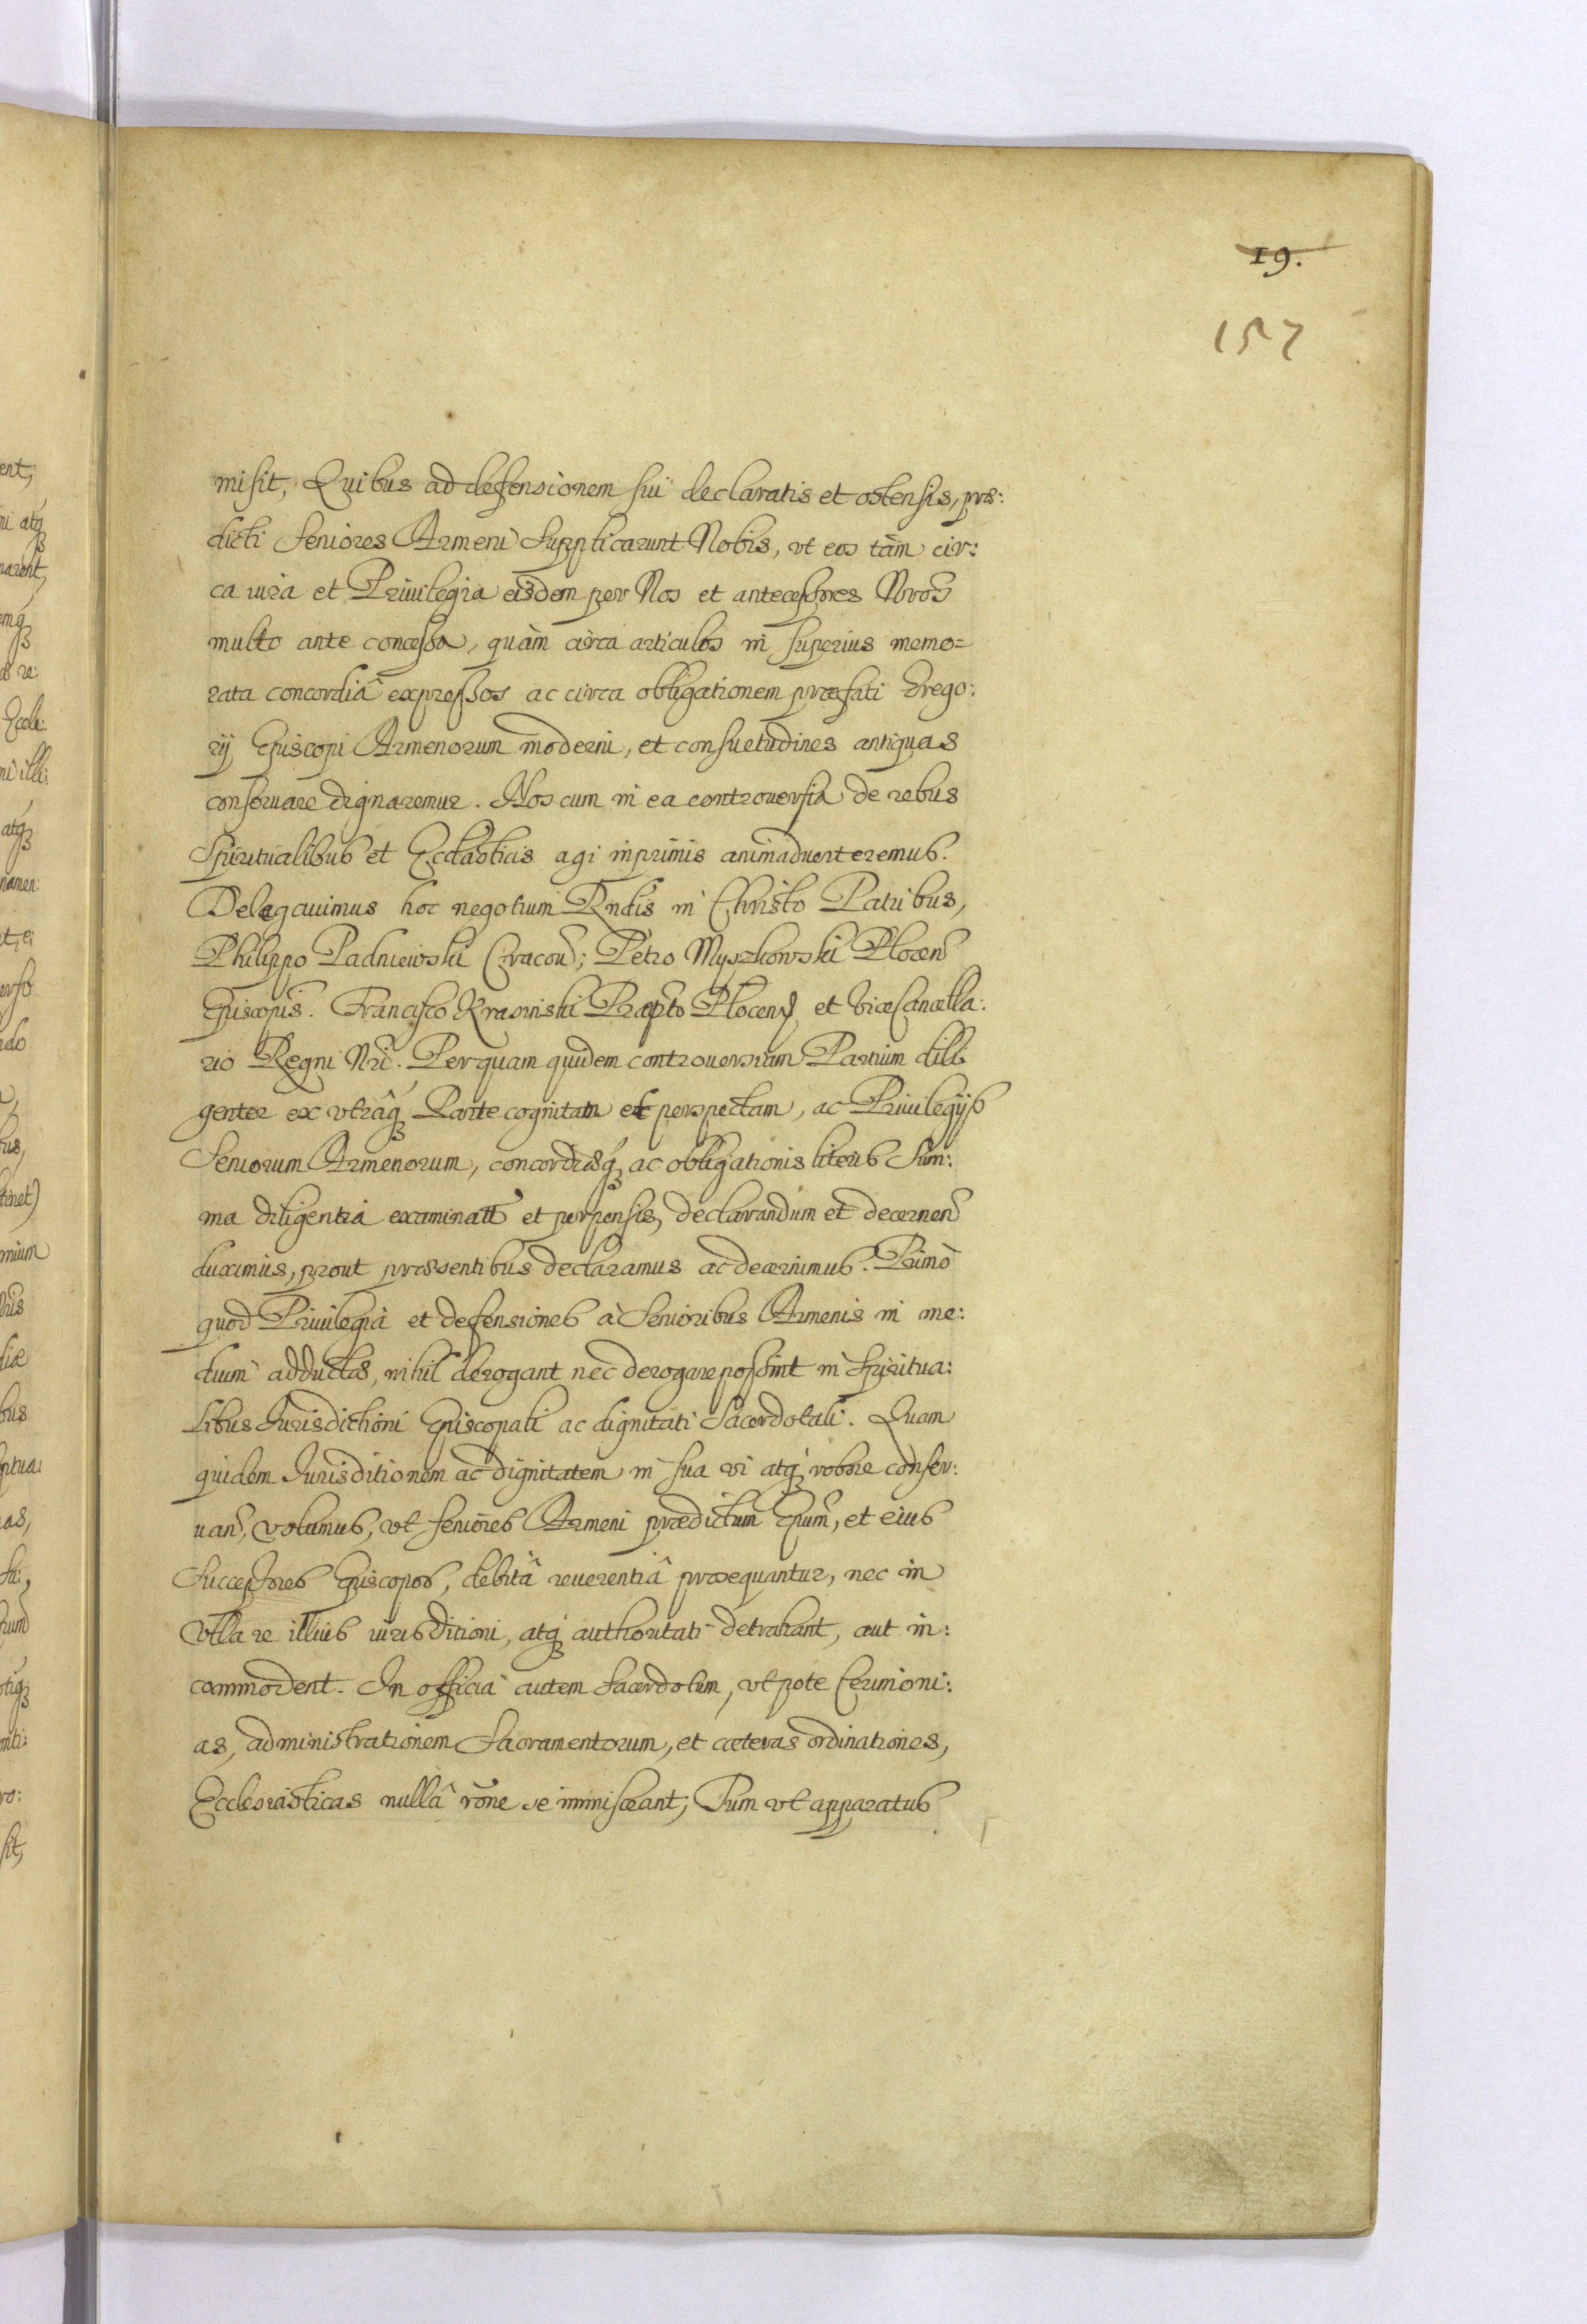 19.
157
misit, Quibus ad defensionem sui declaratis et ostensis, præ:
dicti Seniores Armeni Supplicarunt Nobis, vt eos tàm cir:
ca iura et Priuilegia eisdem per Nos et antecessores Nros
multo ante concessa, quàm circa articulos in superius memo=
rata concordiâ expressos ac circa obligationem præfati Grego:
rij Episcopi Armenorum moderni, et consuetudines antiquas
conseruare dignaremur. Nos cum in ea controuersia de rebus
Spiritualibus et Ecclasticis agi inprimis animaduerteremus.
Delegauimus hoc negotium Rndis in Christo Patribus,
Philippo Padniewski Cracoñ; Petro Myszkowski Plocen
Episcopis. Francisco Krasinski Præpto Plocens et ViceCancella:
rio Regni Nri. Per quam quidem controuersiam Partium dili
genter ex vtrâq; Parte cognitam et perspectam, ac Priuilegijs
Seniorum Armenorum, concordiæq; ac obligationis literis Sum:
ma diligentia examinatis et perpensis, declarandum et decernen
duximus, prout præsentibus declaramus ac decernimus. Primò
quod Priuilegia et defensiones à Senioribus Armenis in me:
dium adductas, nihil derogant nec derogare possint in Spiritua:
libus Jurisdictioni Episcopali ac dignitati Sacerdotali. Quam
quidem Jurisditionem ac dignitatem in sua vi atq; robore conser:
uan, volumus, vt seniores Armeni prædictum Epum, et eius
Successores Episcopos, debitâ reuerentiâ prosequantur, nec in
vlla re illius iurisditioni, atq; authoritati detrahant, aut in:
commodent. In officia autem Sacerdotum, vt pote Cerimoni:
as, administrationem Sacramentorum, et cæteras ordinationes,
Ecclesiasticas nullâ rone se immisceant; Tum vt apparatus